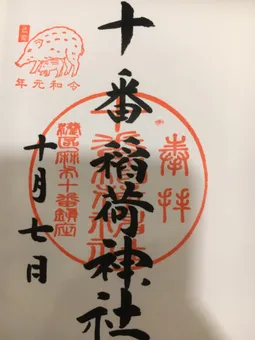 奉拝
十番稲荷神社
港區麻布十番鎮座
十月七日
己亥
令和元年